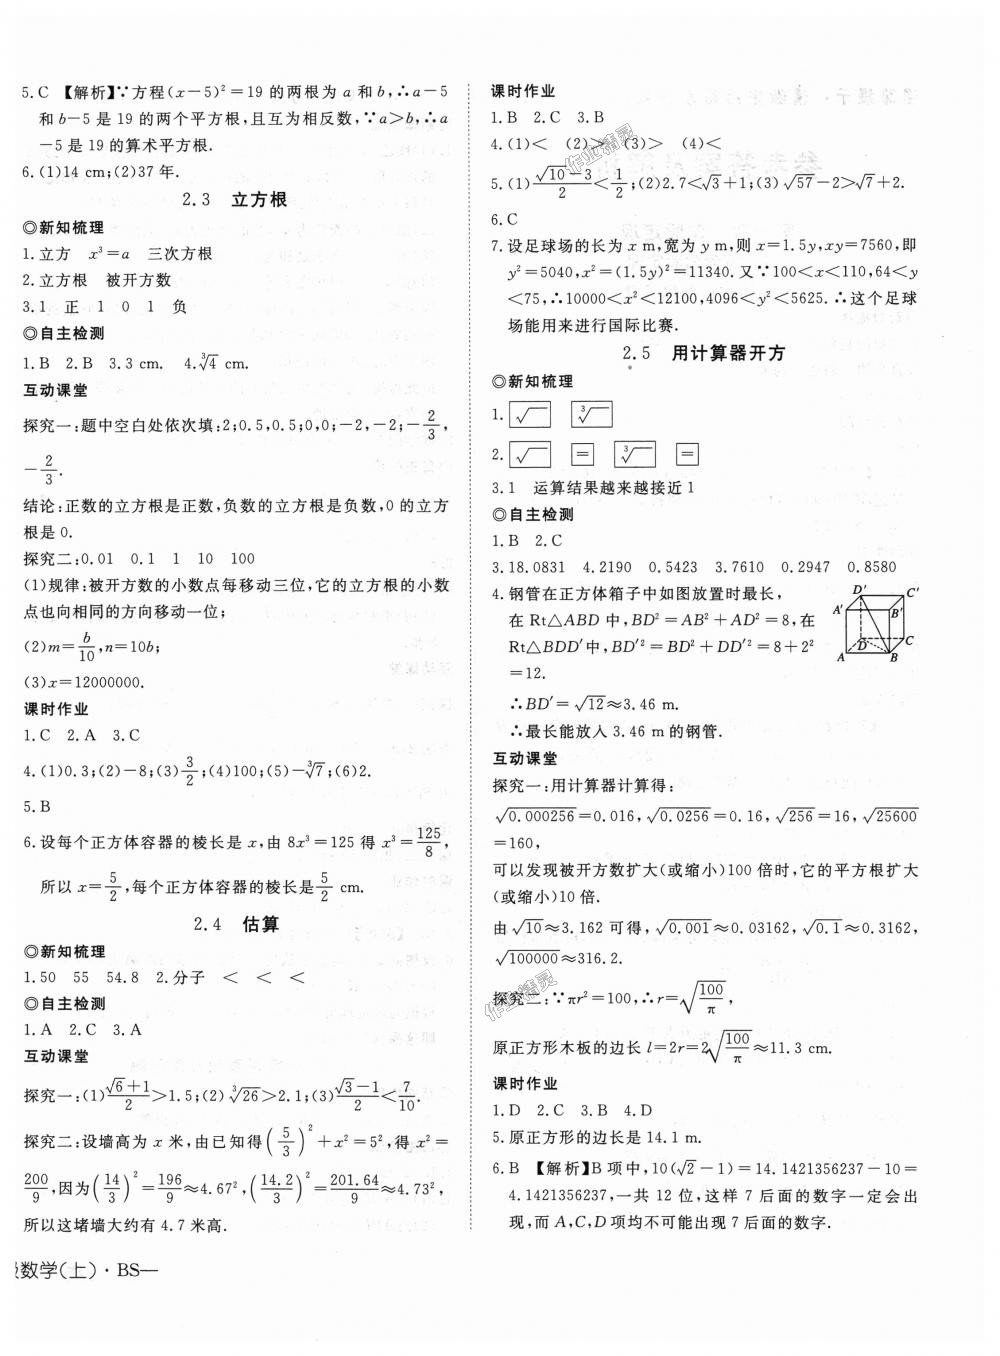 5.C 【解析】∵方程(x－5)²＝19 的两根为 a 和 b,∴a－5
和 b－5 是 19 的两个平方根,且互为相反数,∵a>b,∴a
－5 是 19 的算术平方根.
6.(1)14 cm;(2)37 年.
2.3 立方根
◎新知梳理
1.立方 x³＝a 三次方根
2.立方根 被开方数
3.1 正 1 0 1 负
◎自主检测
1.B 2.B 3.3 cm. 4.∛4 cm.
互动课堂
探究一:题中空白处依次填:2;0.5,0.5;0,0;－2,－2;－2/3,
－2/3.
结论:正数的立方根是正数,负数的立方根是负数,0 的立方
根是 0.
探究二:0.01 0.1 1 10 100
(1)规律:被开方数的小数点每移动三位,它的立方根的小数
点也向相同的方向移动一位;
(2)m＝b/10,n＝10b;
(3)x＝12000000.
课时作业
1.C 2.A 3.C
4.(1)0.3;(2)－8;(3)3/2;(4)100;(5)－∛7;(6)2.
5.B
6.设每个正方体容器的棱长是 x,由 8x³＝125 得 x³＝125/8,
所以 x＝5/2,每个正方体容器的棱长是5/2 cm.
2.4 估算
◎新知梳理
1.50 55 54.8 2.分子 < < <
◎自主检测
1.A 2.C 3.A
互动课堂
探究一:(1)(√6＋1)/2>1.5;(2)∛26>2.1;(3)(√3－1)/2<7/10.
探究二:设墙高为 x 米,由已知得(5/3)²＋x²＝5²,得 x²＝
200/9,因为(14/3)²＝196/9≈4.67²,(14.2/3)²＝201.64/9≈4.73²,
所以这堵墙大约有 4.7 米高.
级数学(上)·BS—
课时作业
1.B 2.C 3.B
4.(1)< (2)> (3)> (4)<
5.(1)(√10－3)/2<1/2;(2)2.7<√3＋1;(3)√57－2>√7＋2.
6.C
7.设足球场的长为 x m,宽为 y m,则 x＝1.5y,xy＝7560,即
y²＝5040,x²＝(1.5y)²＝11340.又∵100<x<110,64<y
<75,∴10000<x²<12100,4096<y²<5625.∴这个足球
场能用来进行国际比赛.
2.5 用计算器开方
◎新知梳理
1.√ ∛
2.√ ＝ ∛ ＝
3.1 运算结果越来越接近 1
◎自主检测
1.B 2.C
3.18.0831 4.2190 0.5423 3.7610 0.2947 0.8580
4.钢管在正方体箱子中如图放置时最长,
在 Rt△ABD 中,BD²＝AB²＋AD²＝8,在
Rt△BDD′中,BD′²＝BD²＋DD′²＝8＋2²
＝12.
∴BD′＝√12≈3.46 m.
∴最长能放入 3.46 m 的钢管.
D′ C′
A′ B′
D C
A B
互动课堂
探究一:用计算器计算得:
√0.000256＝0.016,√0.0256＝0.16,√256＝16,√25600
＝160,
可以发现被开方数扩大(或缩小)100 倍时,它的平方根扩大
(或缩小)10 倍.
由√10≈3.162 可得,√0.001≈0.03162,√0.1≈0.3162,
√100000≈316.2.
探究二:∵πr²＝100,∴r＝√(100/π),
原正方形木板的边长 l＝2r＝2√(100/π)≈11.3 cm.
课时作业
1.D 2.C 3.B 4.D
5.原正方形的边长是 14.1 m.
6.B 【解析】B 项中,10(√2－1)＝14.1421356237－10＝
4.1421356237,一共 12 位,这样 7 后面的数字一定会出
现,而 A,C,D 项均不可能出现 7 后面的数字.
作业精灵
作业精灵